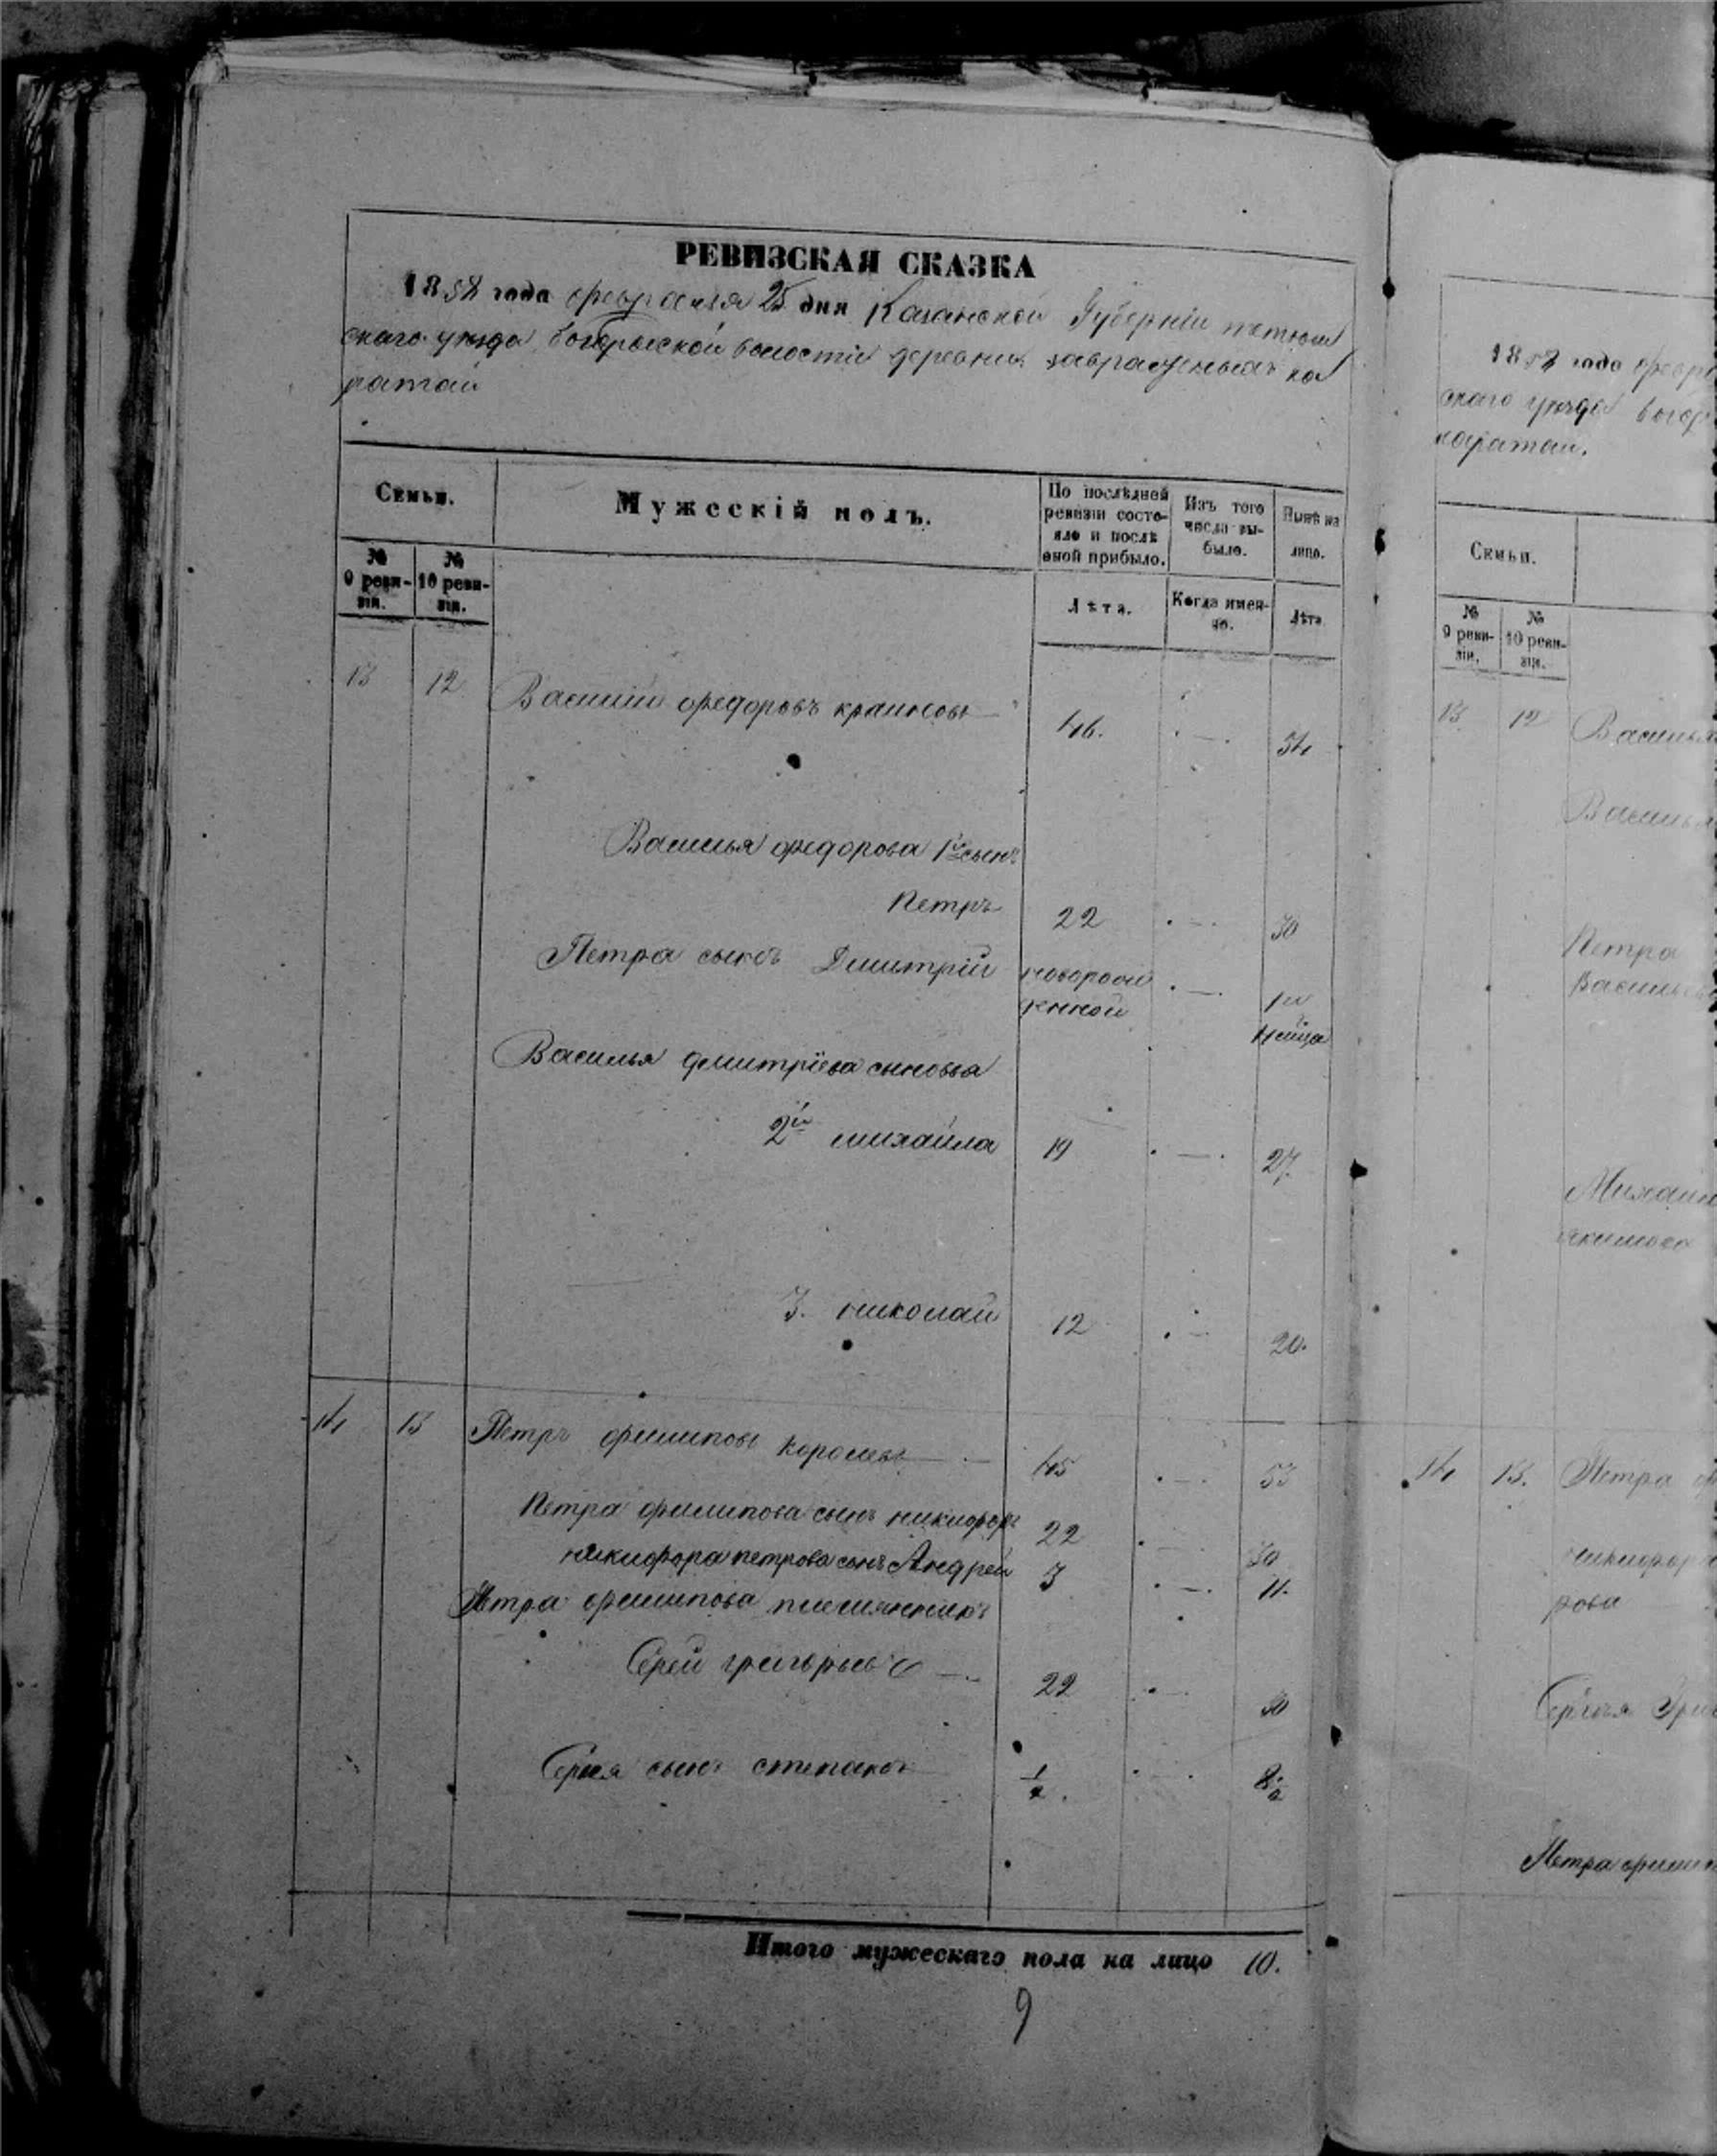 РЕВИЗСКАЯ СКАЗКА
1858 года февраля 25 дня Казанской Губерніи тетюш
скаго уезда богорыской волостіи деревни завражныхъ ка
ратаи
Семьи.
Мужескій полъ.
По послѣдней
ревизіи состо-
яло и послѣ
оной прибыло.
Изъ того
числа вы-
было.
Нынѣ на
лицо.
№
9 реви-
зіи.
№
10 реви-
зіи.
Лѣта.
Когда имен-
но.
Лѣта
13 12 Василіи федоровъ 46. 54
Василья федорова 1й сынъ
Петръ 22 30
Петра сынъ Дмитрій новорож
денной
Василья дмитріева сыновья
2й михайла 19 27.
3. николай 12 20.
14 13 Петръ филиповъ 45 53
Петра филипова сынъ никифоръ 22 30
никифора петрова сынъ Андреи 3 11.
Петра филипова племянникъ
22 30
сынъ степанъ 1/2. 8 1/2
Итого мужескаго пола на лицо 10.
9
1858 года февра
скаго уезда богор
каратаи.
Семьи.
№
9 реви-
зіи.
№
10 реви-
зіи.
13 12 Василья
Василья
Петра
Василь
Михаил
14 13. Петра ф
никифор
рова
Сергея Григ
Петра филип